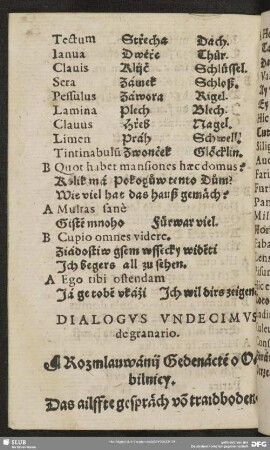 Tectum Střecha Dach.
Ianua Dwéře Thür.
Clauis Klijč Schlüssel.
Sera Zámek Schloß.
Pessulus Záwora Rigel.
Lamina Plech Blech.
Clauus Hřeb Nagel.
Limen Práh Schwell.
Tintinabulū Zwonček Glöcklin.
B Quot habet mansiones hæc domus?
Kolik má Pokogůw tento Dům?
Wie viel hat das hauß gemäch?
A Multas sanè
Gistě mnoho Fürwar viel.
B Cupio omnes videre.
Žiádostiw gsem wssecky widěti
Ich begers all zu sehen.
A Ego tibi ostendam
Já ge tobě vkáži Ich wil dirs zeigen
DIALOGVS VNDECIMVS
de granario.
Rozmlauwánij Gedenácté o O
bilnicy.
Das ailffte gespräch võ traidboden
SLUB
DFG